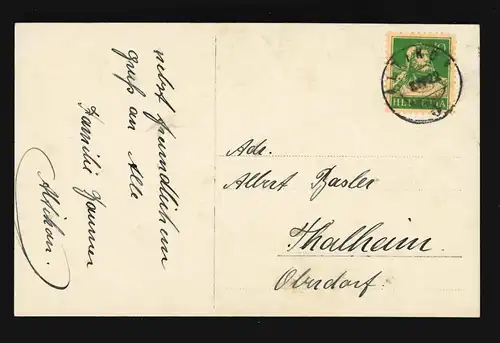 nebst freundlichem
gruß an Alle
Familie Gaumer
Altikon.
10
HELVETIA
Adr.
Albert Basler
Thalheim.
Oberdorf.